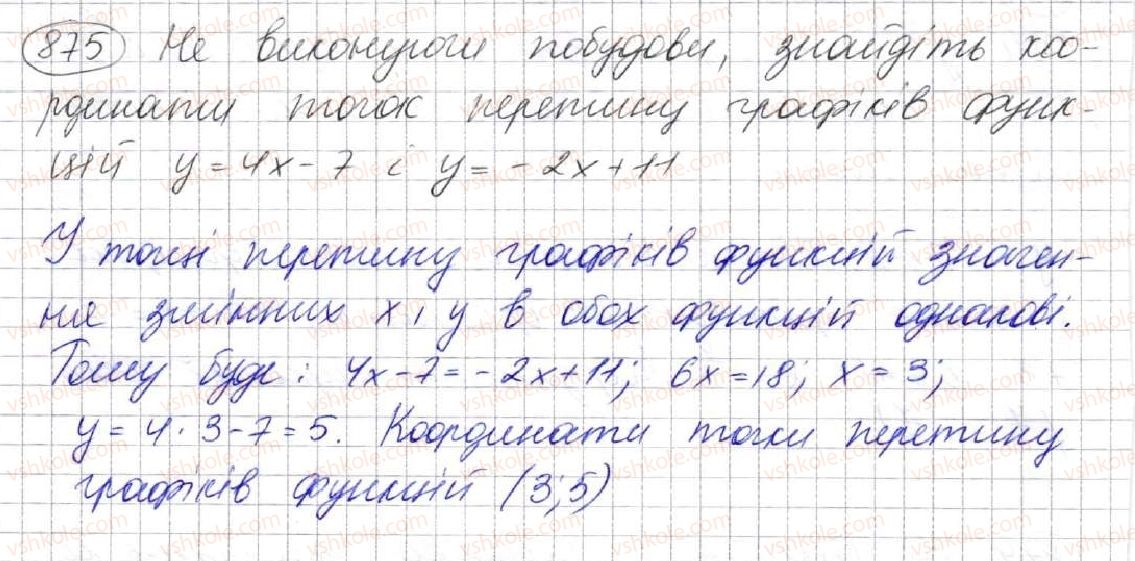 875 Не виконуючи побудови, знайдіть коо-
рдинати точок перетину графіків функ-
цій y = 4x - 7 і y = - 2x + 11
У точці перетину графіків функцій значен-
ня змінних x і y в обох функцій однакові.
Тому буде: 4x - 7 = - 2x + 11; 6x = 18; x = 3;
y = 4 · 3 - 7 = 5. Координати точки перетину
графіків функцій (3; 5)